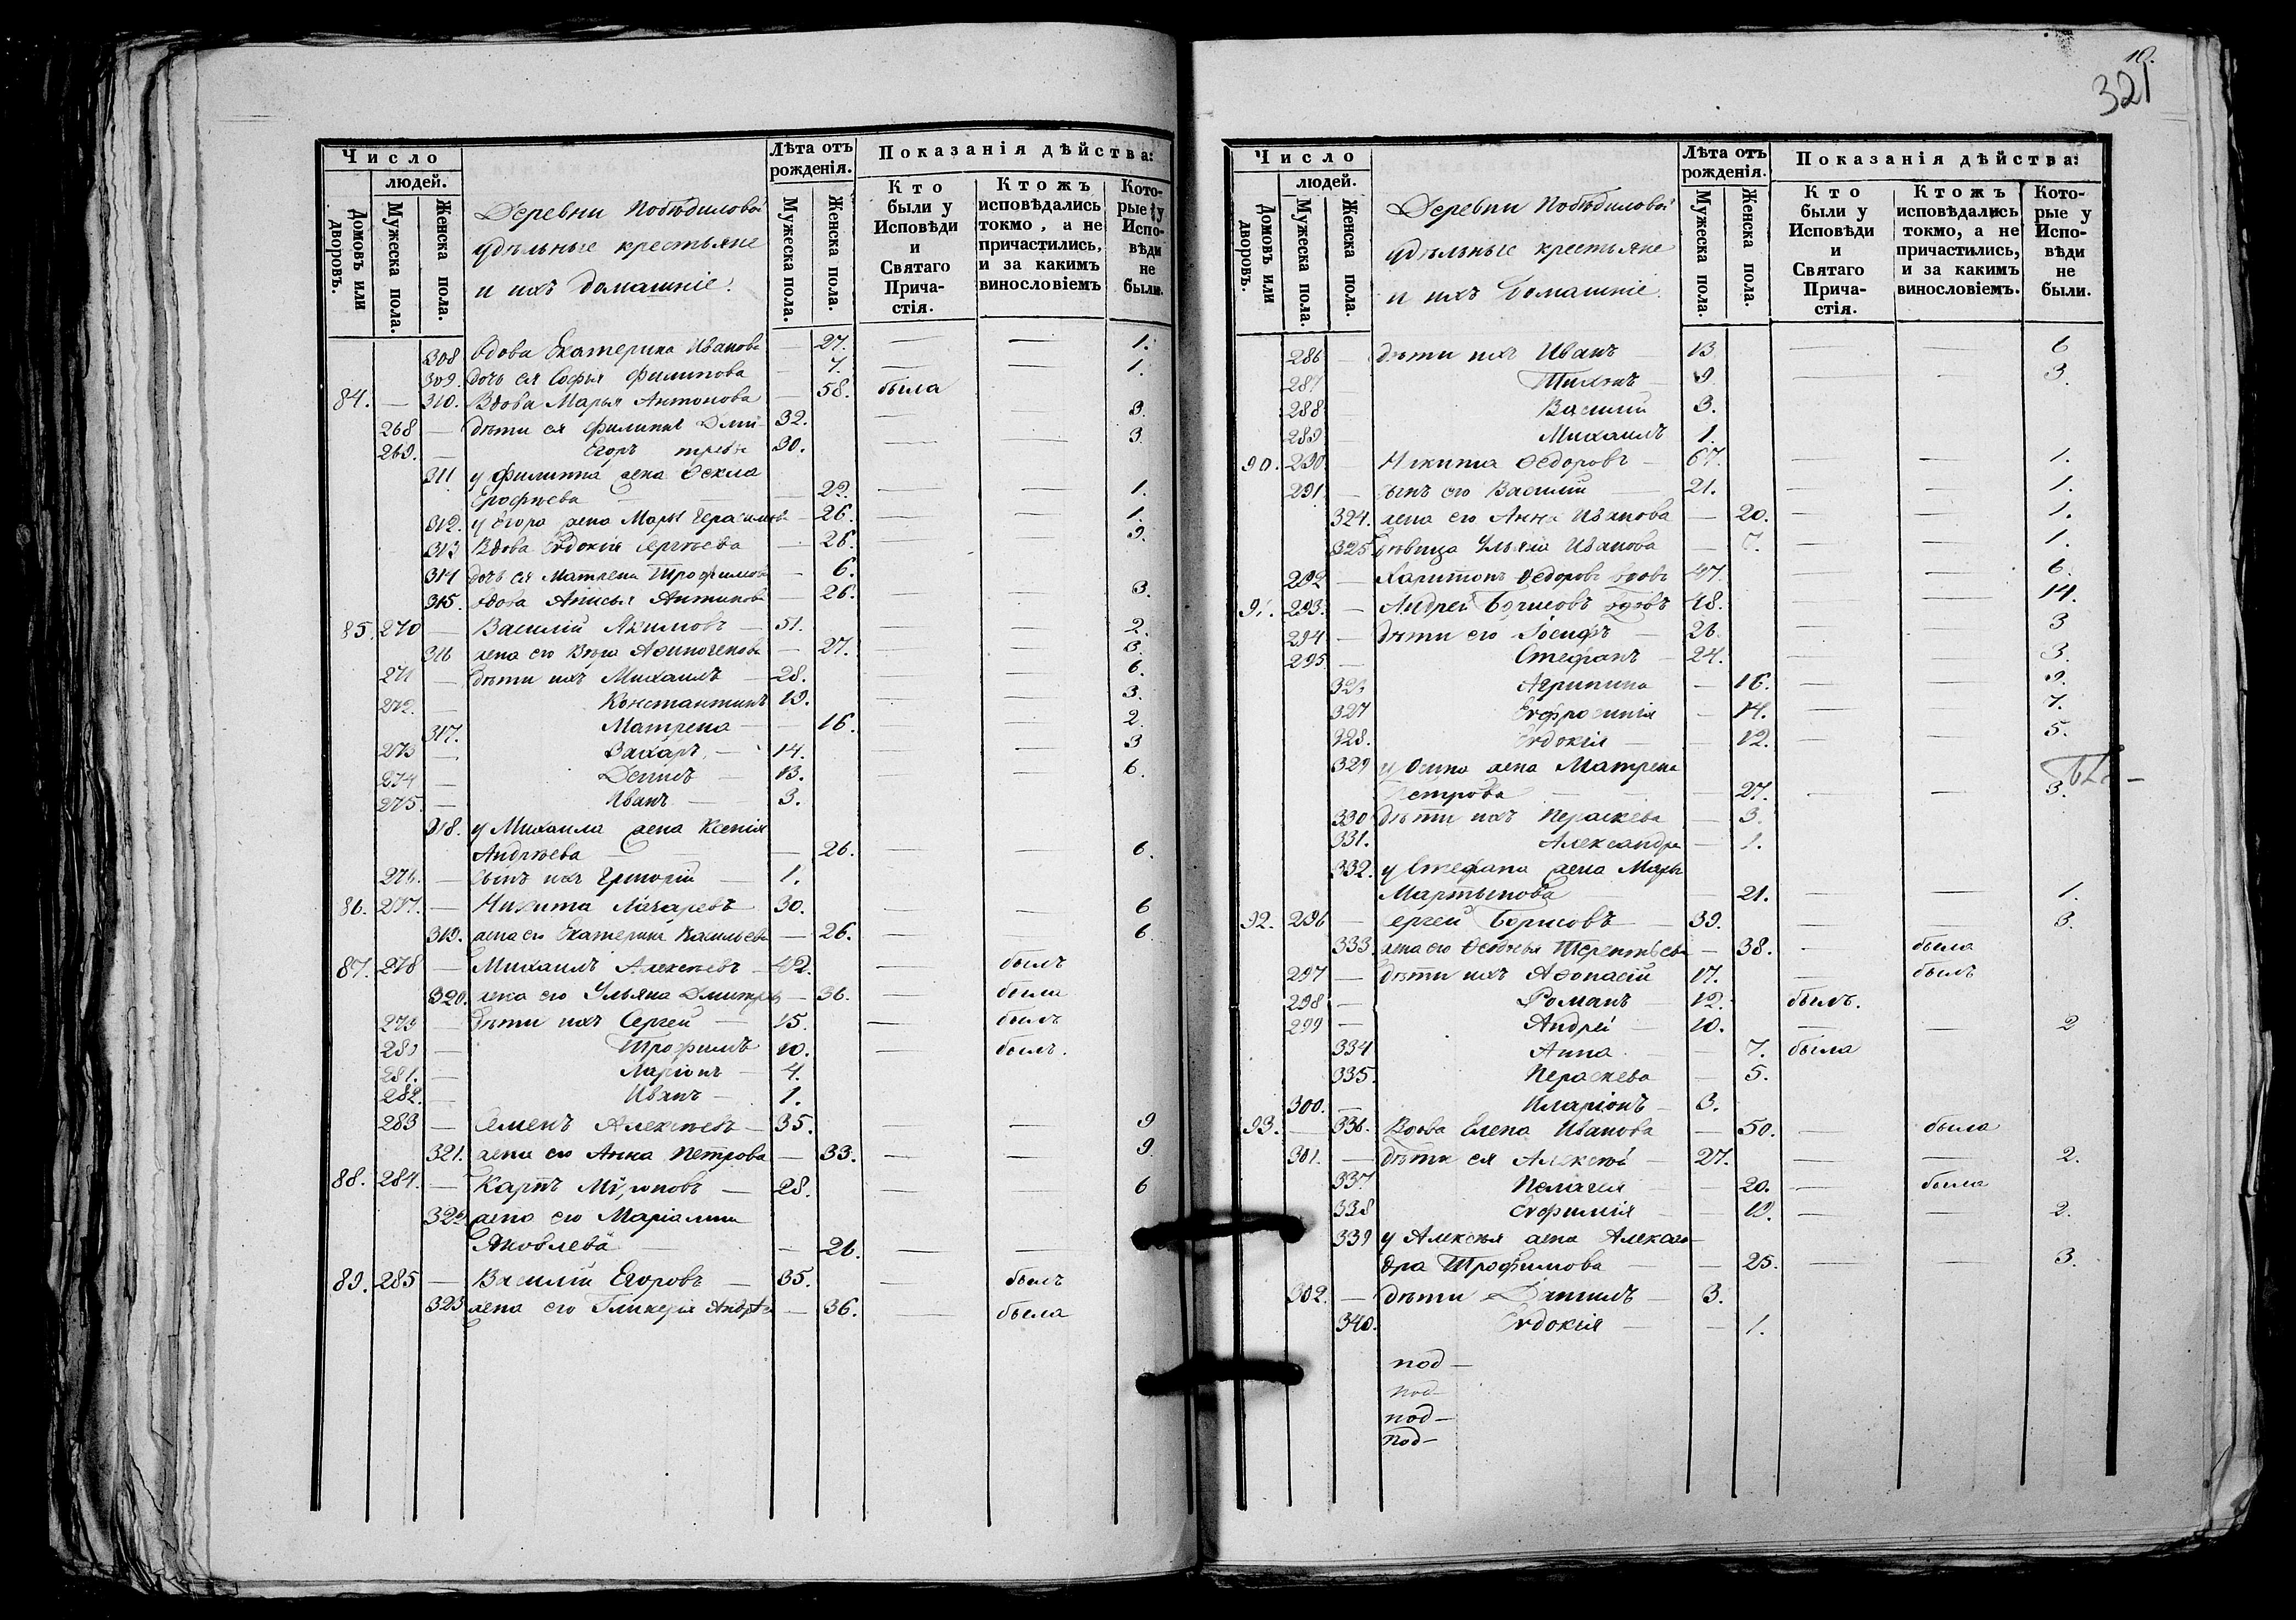 Число
людей.
Домовъ или дворовъ.
Мужеска пола.
Женска пола.
Деревни Побѣдиловой
удѣльные крестьяне
и ихъ домашніе.
Лѣта отъ рожденія.
Мужеска пола.
Женска пола.
Показанія дѣйства:
Кто были у Исповѣди и Святаго Прича-стія.
Ктожъ исповѣдались токмо, а не причастились, и за какимъ винословіемъ
Кото-рые у Испо-вѣди не были.
308 вдова Екатерина Иванова — 27. — — 1.
309. дочь ея Софья Филипова — 7. — — 1.
84. — 310. Вдова Марья Антонова — 58. была
268 — дѣти ея Филипъ Дми- 32. — — 3.
269. — Егоръ тревы 30. — — 3.
311 у Филиппа жена Фекла
Ерофѣева — 22. — — 1.
312. у Егора жена Марья Герасимова — 26. — — 1.
313 Вдова Евдокія Сергѣева — 26. — — 3.
314 дочь ея Матрена Трофимова — 6.
315. вдова Анисья Антипова — 26. — — 3.
85. 270 — Василій Акимовъ — 51. — — 2.
316 жена его Вѣра Афиногенова — 27. — — 3.
271 — дѣти ихъ Михаилъ — 28. — — 6.
272. — Константинъ 19. — — 3.
317. Матрена — 16. — — 2.
273 — Захаръ — 14. — — 3
274 — Данилъ — 13. — 6.
275. — Иванъ — 3.
318. у Михаила жена Ксенія
Андрѣева — 26. — — 6.
276. — сынъ ихъ Григорій — 1.
86. 277. — Никита Лазаревъ 30. — — 6
319. жена его Екатерина Васильева — 26. — — 6
87. 278 — Михаилъ Алексѣевъ — 42. — былъ
320. жена его Ульяна Дмитрева — 36. — была
279 — дѣти ихъ Сергей — 15. — былъ
280 — Трофимъ 10. — былъ.
281. — Ларіонъ — 4.
282. — Иванъ — 1.
283 — Семенъ Алексѣевъ — 35. — — 9
321. жена его Анна Петрова — 33. — — 9.
88. 284. — Карпъ Міроновъ — 28. — — 6
322 жена его Маріамна
Яковлева — 26. — —
89. 285 — Василій Егоровъ — 35. — былъ
323 жена его Гликерія Андрѣева — 36. — была
10.
321
Число
людей.
Домовъ или дворовъ.
Мужеска пола.
Женска пола.
Деревни Побѣдиловой
удѣльные крестьяне
и ихъ домашніе.
Лѣта отъ рожденія.
Мужеска пола.
Женска пола.
Показанія дѣйства:
Кто были у Исповѣди и Святаго Прича-стія.
Ктожъ исповѣдались токмо, а не причастились, и за какимъ винословіемъ.
Кото-рые у Испо-вѣди не были.
286 — дѣти ихъ Иванъ — 13 — — 6
287 — Тихонъ — 9 — — 3.
288 — Василій 3.
289 — Михаилъ 1.
90. 290 — Никита Федоровъ — 67. — — 1.
291 — сынъ его Василій — 21. — — 1.
324. жена его Анна Иванова — 20. — — 1.
325 дѣвица Ульяна Иванова — 7. — — 1.
292 — Харитонъ Федоровъ вдовъ 47. — — 6.
91. 293. — Андрей Борисовъ вдовъ 48. — — 14.
294 — дѣти его Іосифъ — 26 — — 3
295 — Стефанъ — 24. — — 3.
326 Агрипина — 16. — — 9.
327 Евфросинія — 14. — — 7.
328. Евдокія — 12. — — 5.
329 у Осипа жена Матрена
Петрова — 27. — — 3.
330 дѣти ихъ Пераскева — 3.
331. Александра — 1.
332. у Стефана жена Марья
Мартынова — 21. — — 1.
92. 296 — Сергей Борисовъ — 39. — 3.
333 жена его Федосья Терентьева — 38. — была
297 — дѣти ихъ Афонасій 17. — былъ
298 — Романъ — 12. былъ.
299 — Андрей — 10. — — 2
334 Анна — 7. была
335. Пераскева — 5.
300. — Иларіонъ — 3.
93. — 336. Вдова Елена Иванова — 50. — была
301. — дѣти ея Алексѣй — 27. — — 2.
337 Пелагея — 20. — была
338 Евфимія — 19. — — 2.
339 у Алексѣя жена Алексан-
дра Трофимова — 25. — — 3.
302. — дѣти Данилъ — 3.
340. Евдокія — 1.
под—
под—
под—
под—